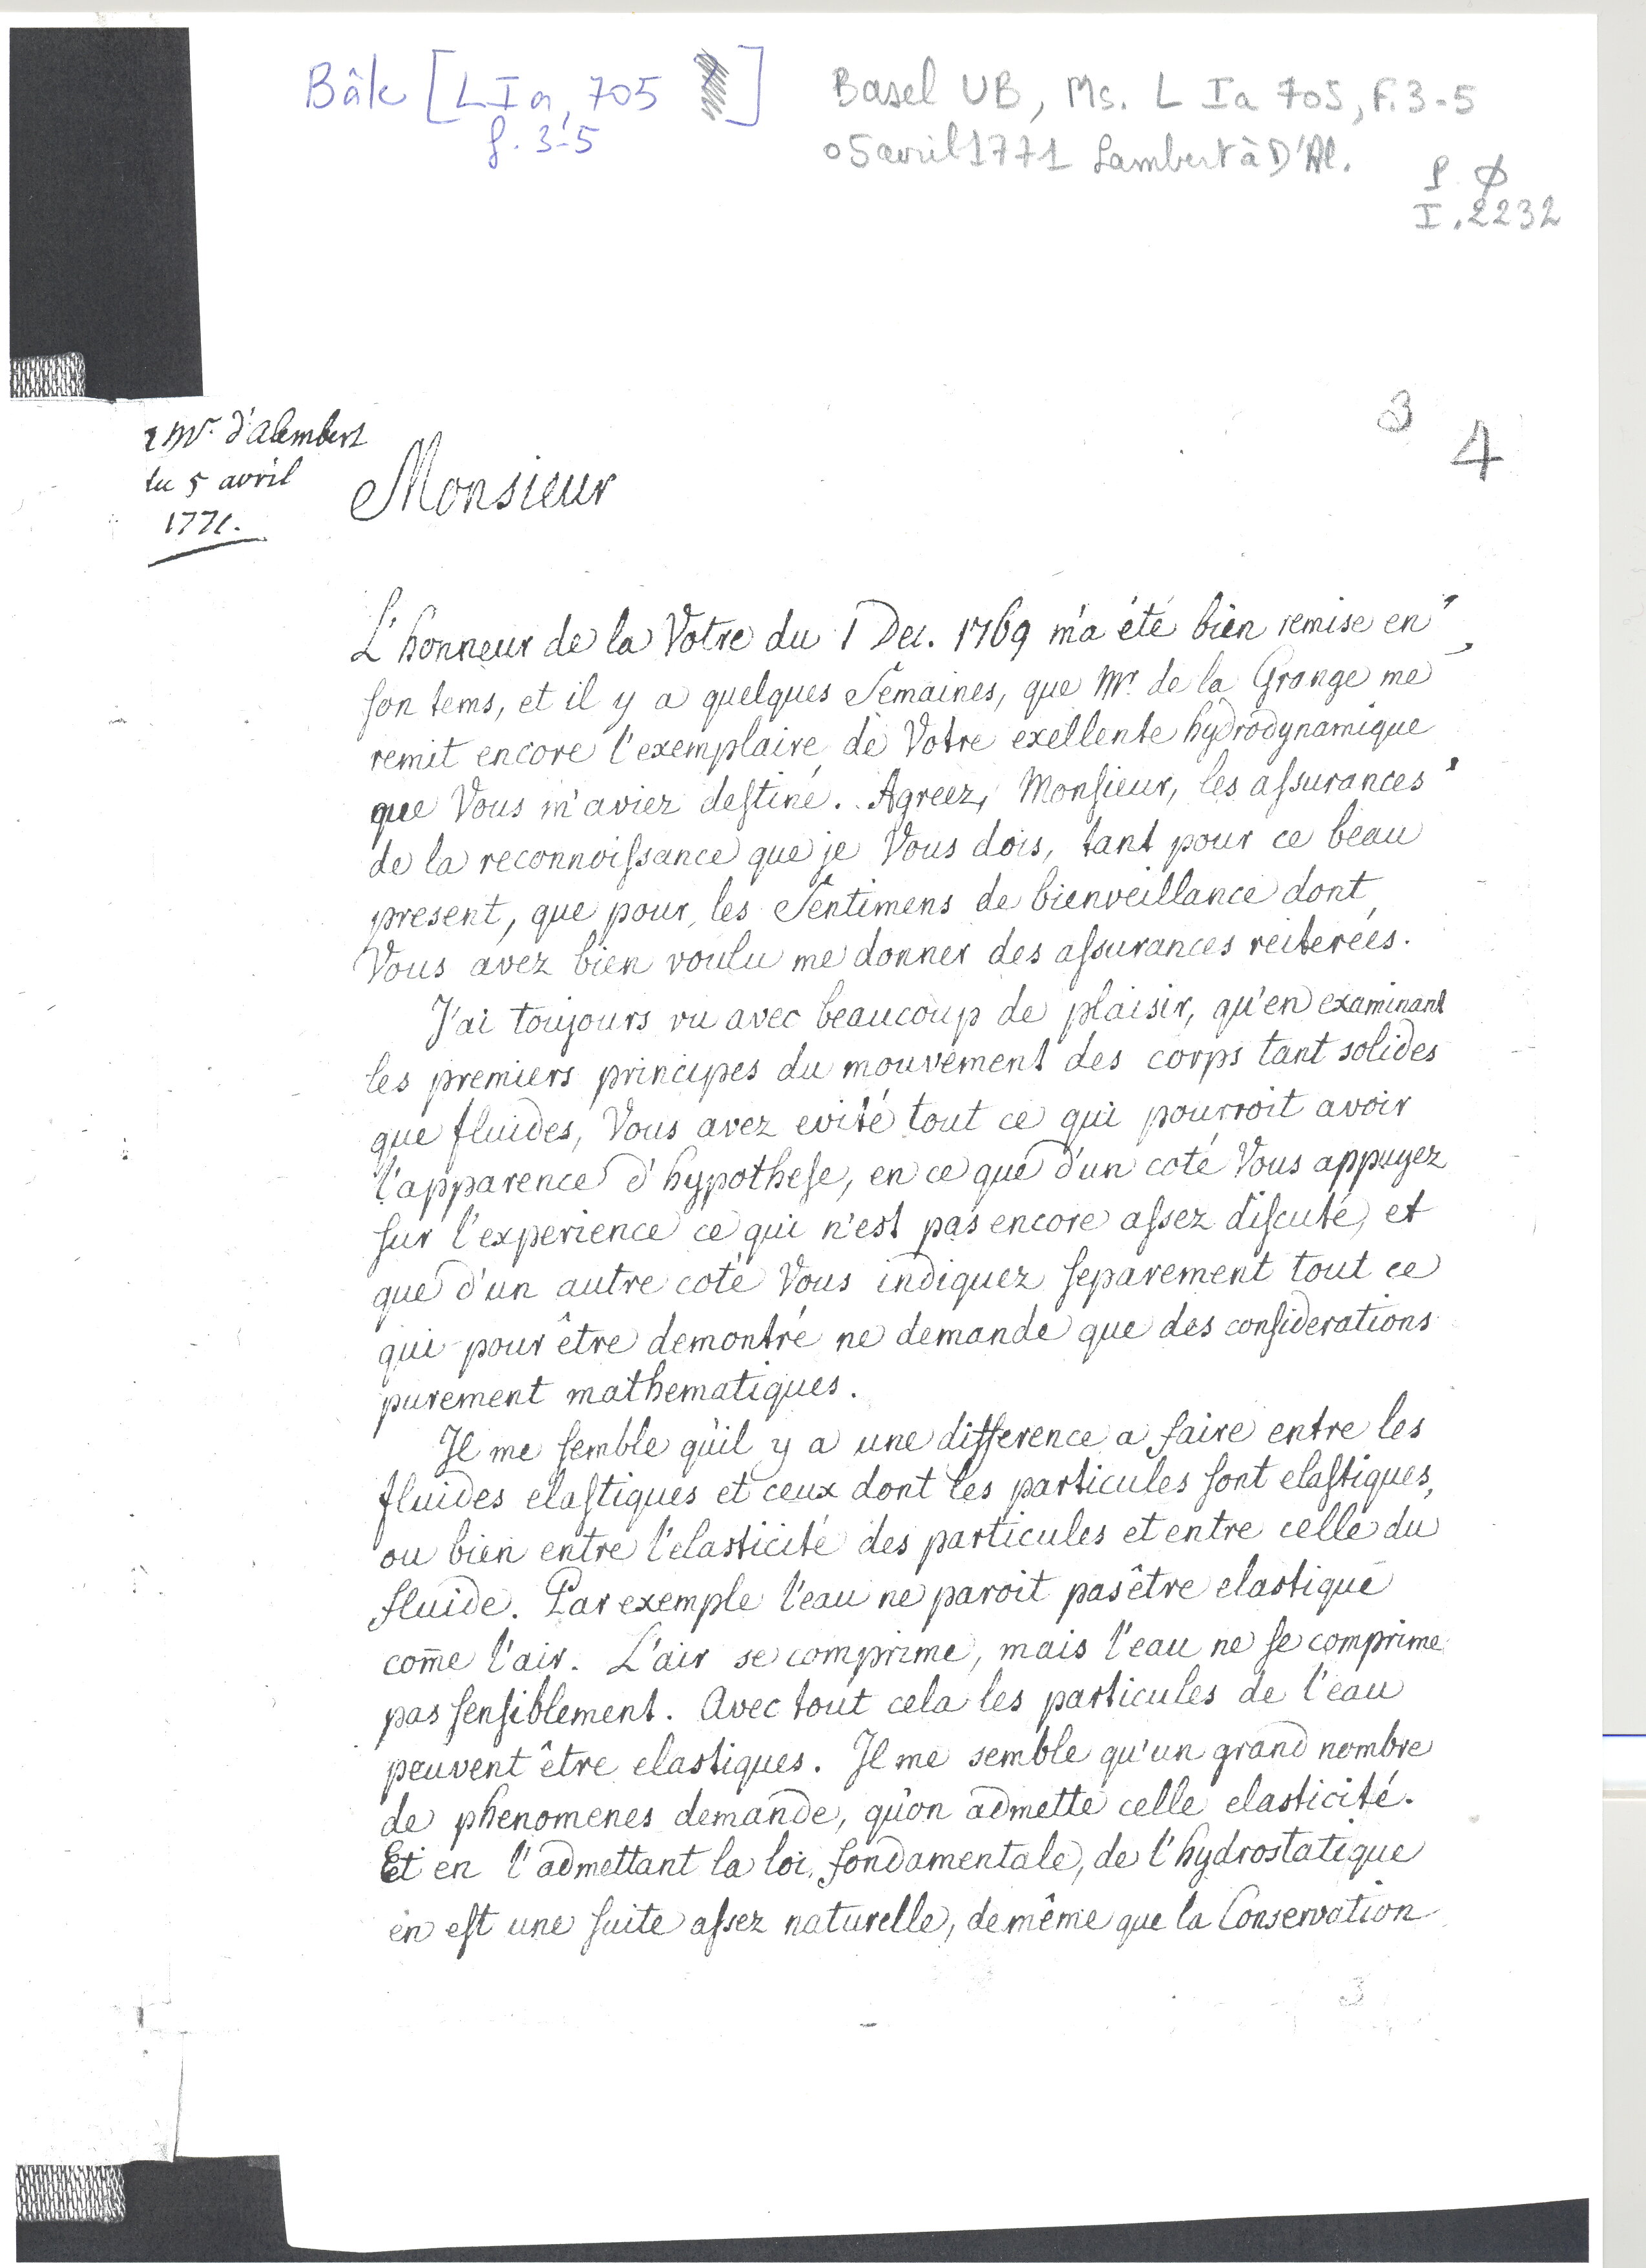 Bâle [L I a, 705 ]
f. 3-5
Basel UB, Ms. L Ia 705, F. 3-5
05 avril 1771 Lambert à D'Al.
P. Ø
I. 2232
3
4
Mr. d'alembert
du 5 avril
1771.
Monsieur
L'honneur de la Votre du 1 Dec. 1769 m'a été bien remise en
son tems, et il y a quelques Semaines, que Mr. de la Grange me
remit encore l'exemplaire de Votre exellente hydrodynamique
que Vous m'aviez destiné. Agreez, Monsieur, les assurances
de la reconnoissance que je Vous dois, tant pour ce beau
present, que pour les Sentimens de bienveillance dont
Vous avez bien voulu me donner des assurances reiterées.
J'ai toujours vu avec beaucoup de plaisir, qu'en examinant
les premiers principes du mouvement des corps tant solides
que fluides, Vous avez evité tout ce qui pourroit avoir
l'apparence d'hypothese, en ce que d'un coté Vous appuyez
sur l'experience ce qui n'est pas encore assez discuté, et
que d'un autre coté Vous indiquez separement tout ce
qui pour être demontré ne demande que des considerations
purement mathematiques.
Il me semble qu'il y a une difference a faire entre les
fluides elastiques et ceux dont les particules sont elastiques,
ou bien entre l'elasticité des particules et entre celle du
fluide. Par exemple l'eau ne paroit pas être elastique
com̄e l'air. L'air se comprime, mais l'eau ne se comprime
pas sensiblement. Avec tout cela les particules de l'eau
peuvent être elastiques. Il me semble qu'un grand nombre
de phenomenes demande, qu'on admette celle elasticité.
Et en l'admettant la loi fondamentale, de l'hydrostatique
en est une suite assez naturelle, de même que la Conservation
3